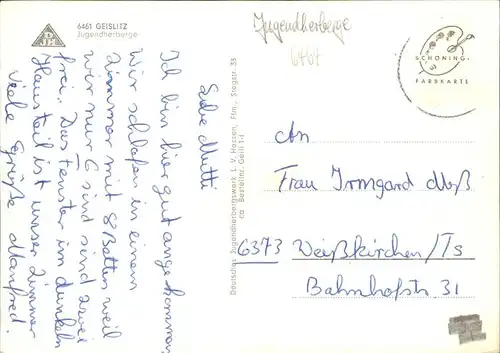 6461 GEISLITZ
Jugendherberge
Liebe Mutti
Ich bin hier gut angekommen,
Wir schlafen in einem
Zimmer mit 8 Betten weil
wir nur 6 sind sind zwei
frei. Das Fenster im dunkeln
Hausteil ist unser Zimmer
Viele Grüße Manfred!
Deutsches Jugendherbergswerk L. V. Hessen, Ffm., Stegstr. 33
ca Bestellnr. Geili 1-1
Jugendherberge
6461
SCHÖNING-
FARBKARTE
An
Frau Irmgard Moß
6373 Weißkirchen/Ts
Bahnhofstr. 31